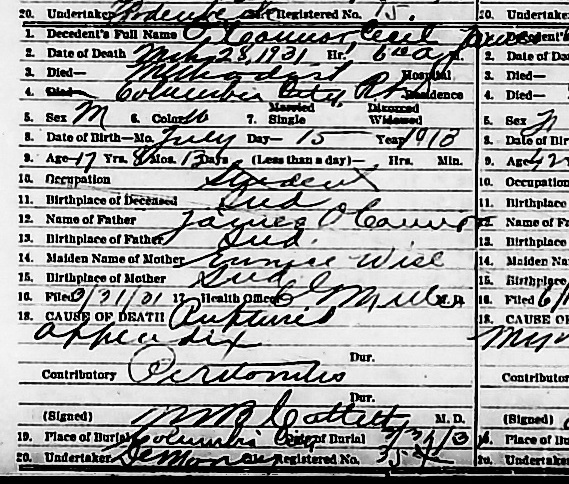 20. Undertaker Registered No. 15. 20. Undertaker
1. Decedent's Full Name O'Connor Cecil James 1. Decedent's
2. Date of Death Mch 28, 1931 Hr. 6 2. Date of Death
3. Died— Methodist Hospital 3. Died—
4. Died— Columbia City, Residence 4. Died—
5. Sex M 6. Color W 7. Married Single Divorced Widowed 5. Sex
8. Date of Birth—Mo. July Day— 15 Year 1913 8. Date of Birth
9. Age 17 Yrs. 8 Mos. 13 Days (Less than a day)— Hrs. Min. 9. Age 42
10. Occupation Student 10. Occupation
11. Birthplace of Deceased Ind 11. Birthplace
12. Name of Father James O'Connor 12. Name of Fa
13. Birthplace of Father Ind. 13. Birthplace
14. Maiden Name of Mother Wise 14. Maiden Na
15. Birthplace of Mother Ind 15. Birthplace
16. Filed 3/31/31 17. Health Officer M.D. 16. Filed 6/
18. CAUSE OF DEATH Ruptured 18. CAUSE OF
appendix
Dur.
Contributory Peritonitis Contributory
Dur.
(Signed) M. D. (Signed)
19. Place of Burial Columbia City Date of Burial 19. Place of Bu
20. Undertaker DeMoney Registered No. 20. Undertaker